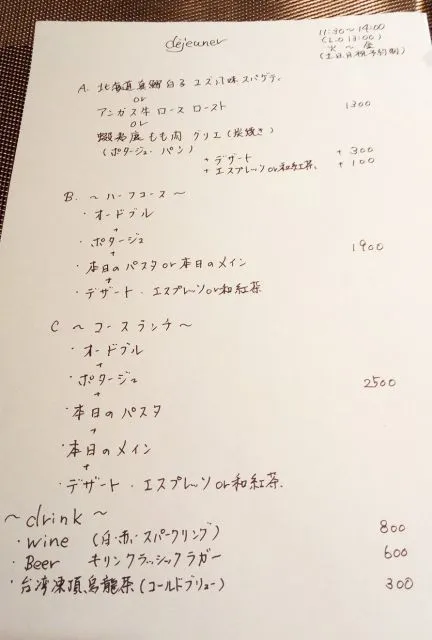 déjeuner
11:30～14:00
(L.O 13:00)
火 ～ 金
(土日月祝予約制)
A. 北海道真鱈白子 ユズ七味スパゲティ
or
アンガス牛 ロース ロースト 1300
or
蝦夷鹿もも肉 グリエ(炭焼き)
(ポタージュ・パン)
+ デザート + 300
+ エスプレッソor和紅茶. + 100
B. ～ハーフコース～
・オードブル
+
・ポタージュ
+ 1900
・本日のパスタor本日のメイン
+
・デザート・エスプレッソor和紅茶
C ～コースランチ～
・オードブル
+
・ポタージュ 2500
+
・本日のパスタ
+
・本日のメイン
+
・デザート・エスプレッソor和紅茶.
～drink～
・wine (白・赤・スパークリング) 800
・Beer キリンクラッシックラガー 600
・台湾凍頂烏龍茶(コールドブリュー) 300